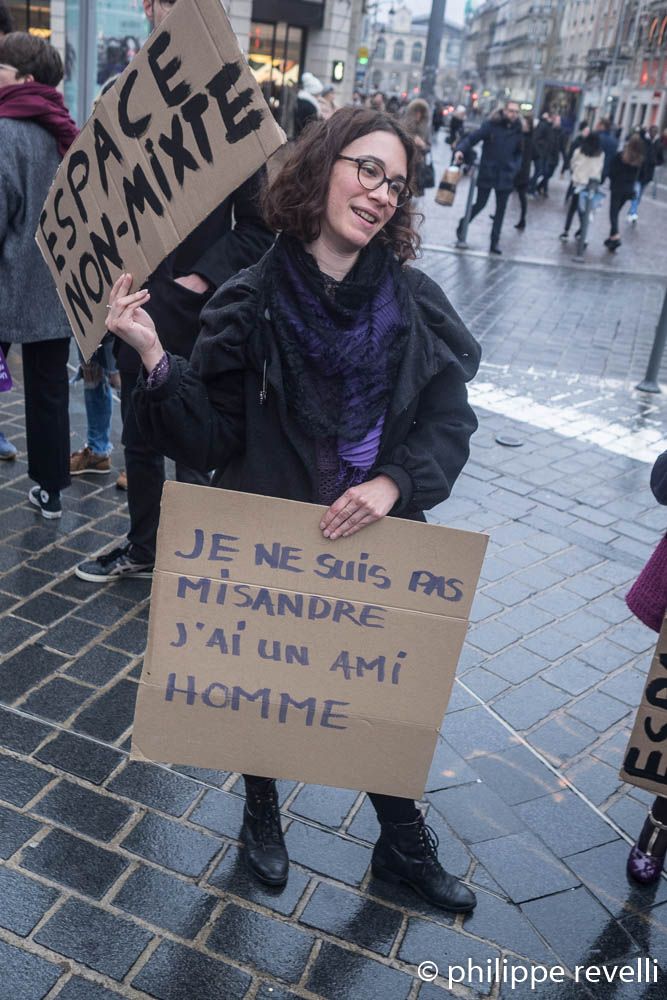 ESPACE
NON-MIXTE
JE NE SUIS PAS
MISANDRE
J'AI UN AMI
HOMME
© philippe revelli